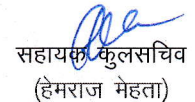 सहायक कुलसचिव
(हेमराज मेहता)